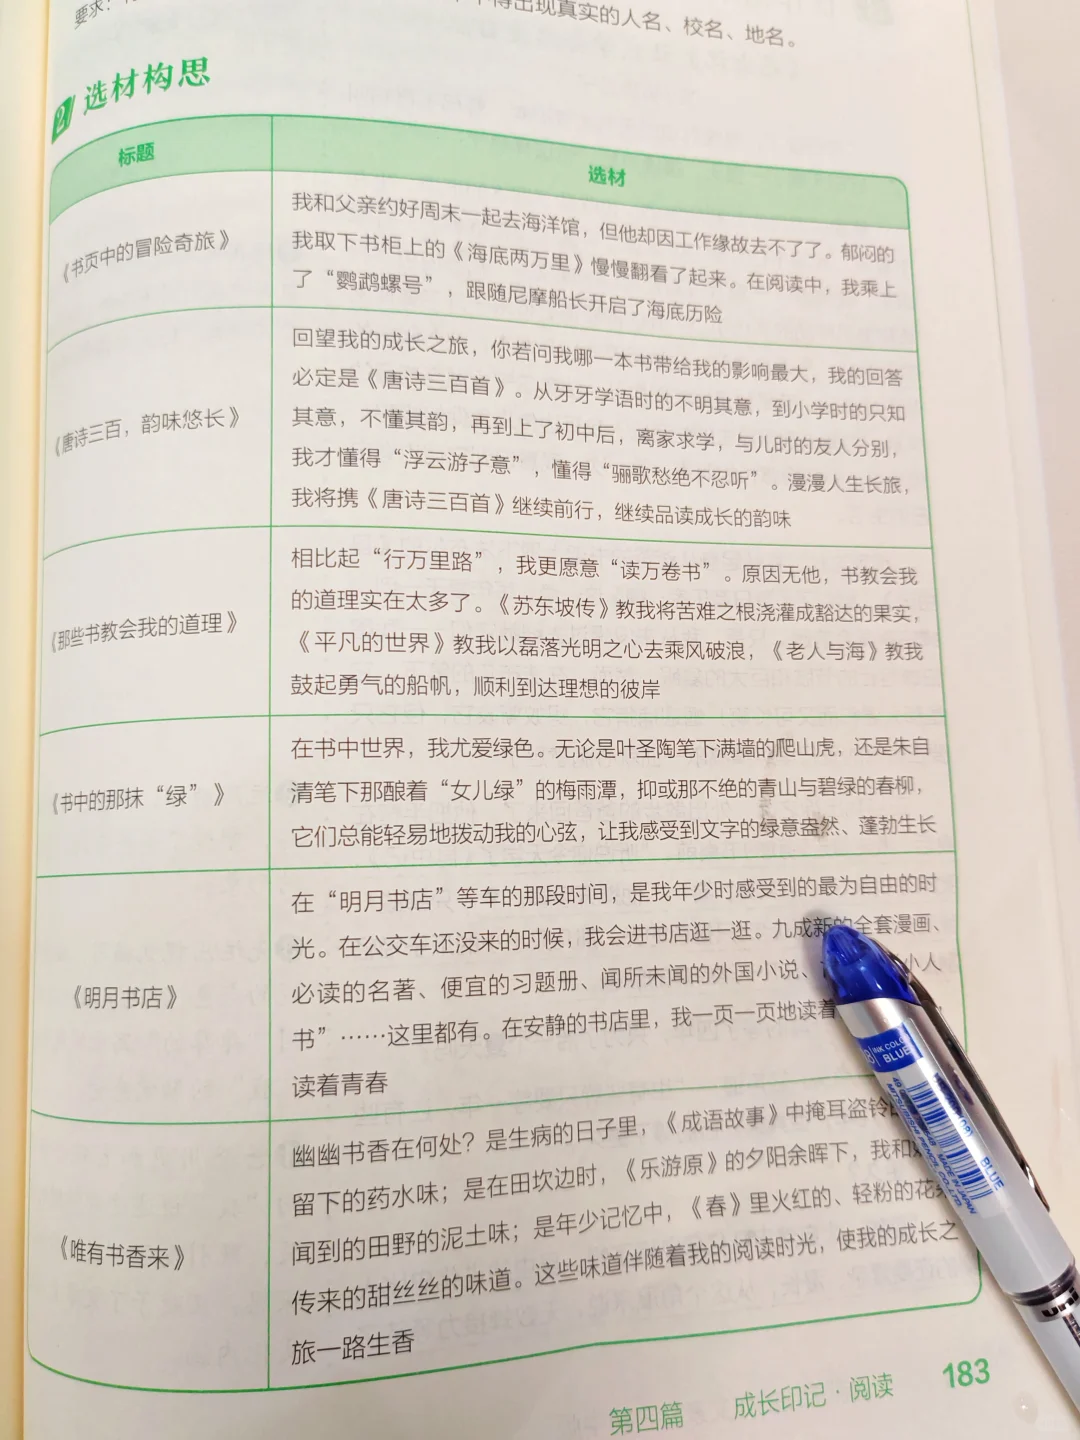 要求：
不得出现真实的人名、校名、地名。
2 选材构思
标题
选材
《书页中的冒险奇旅》
我和父亲约好周末一起去海洋馆，但他却因工作缘故去不了了。郁闷的
我取下书柜上的《海底两万里》慢慢翻看了起来。在阅读中，我乘上
了“鹦鹉螺号”，跟随尼摩船长开启了海底历险
《唐诗三百，韵味悠长》
回望我的成长之旅，你若问我哪一本书带给我的影响最大，我的回答
必定是《唐诗三百首》。从牙牙学语时的不明其意，到小学时的只知
其意，不懂其韵，再到上了初中后，离家求学，与儿时的友人分别，
我才懂得“浮云游子意”，懂得“骊歌愁绝不忍听”。漫漫人生长旅，
我将携《唐诗三百首》继续前行，继续品读成长的韵味
《那些书教会我的道理》
相比起“行万里路”，我更愿意“读万卷书”。原因无他，书教会我
的道理实在太多了。《苏东坡传》教我将苦难之根浇灌成豁达的果实，
《平凡的世界》教我以磊落光明之心去乘风破浪，《老人与海》教我
鼓起勇气的船帆，顺利到达理想的彼岸
《书中的那抹“绿”》
在书中世界，我尤爱绿色。无论是叶圣陶笔下满墙的爬山虎，还是朱自
清笔下那酿着“女儿绿”的梅雨潭，抑或那不绝的青山与碧绿的春柳，
它们总能轻易地拨动我的心弦，让我感受到文字的绿意盎然、蓬勃生长
《明月书店》
在“明月书店”等车的那段时间，是我年少时感受到的最为自由的时
光。在公交车还没来的时候，我会进书店逛一逛。九成新的全套漫画、
必读的名著、便宜的习题册、闻所未闻的外国小说、小人
书”……这里都有。在安静的书店里，我一页一页地读着
读着青春
《唯有书香来》
幽幽书香在何处？是生病的日子里，《成语故事》中掩耳盗铃
留下的药水味；是在田坎边时，《乐游原》的夕阳余晖下，我和
闻到的田野的泥土味；是年少记忆中，《春》里火红的、轻粉的花
传来的甜丝丝的味道。这些味道伴随着我的阅读时光，使我的成长之
旅一路生香
INK COLOR
BLUE
BLUE
MITSUBISHI PENCIL CO.,LTD.
MADE IN JAPAN
uni
第四篇 成长印记·阅读 183